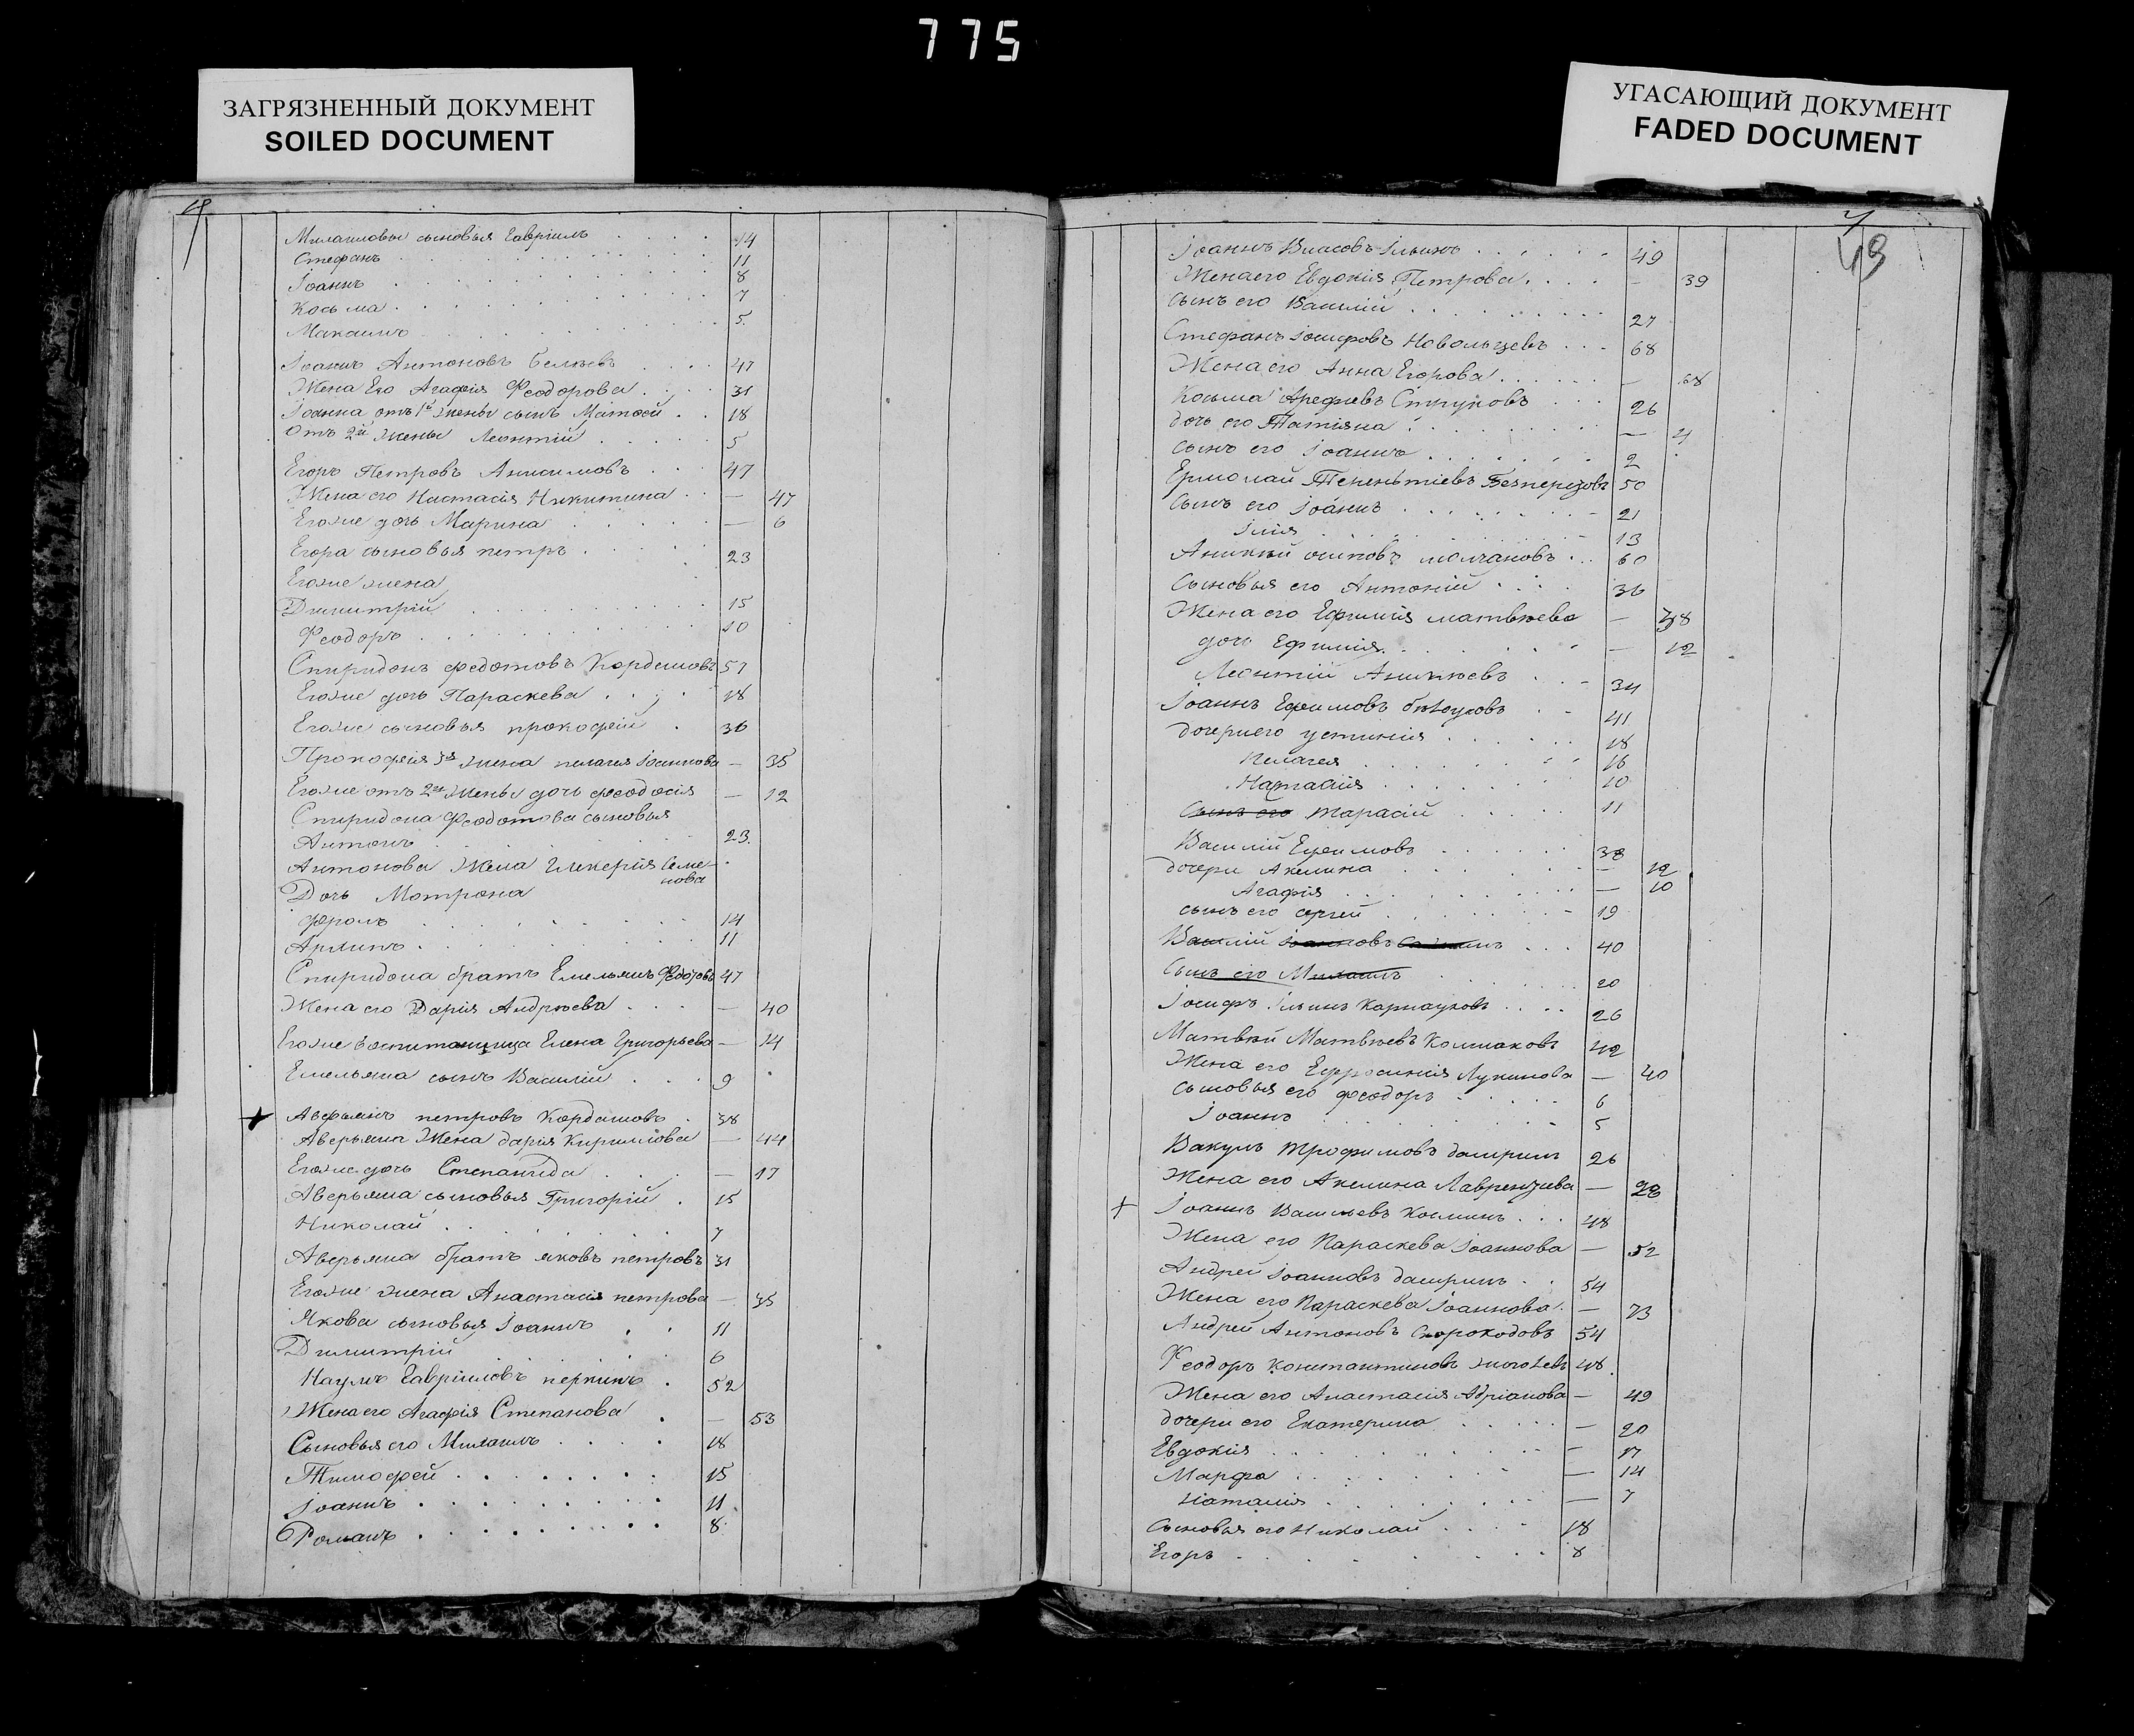 775
ЗАГРЯЗНЕННЫЙ ДОКУМЕНТ
SOILED DOCUMENT
УГАСАЮЩИЙ ДОКУМЕНТ
FADED DOCUMENT
Михаиловы сыновья Гавріилъ 14
Стефанъ 11
Іоаннъ 8
Косьма 7
Максимъ 5
Іоаннъ Антоновъ 47
Жена Его Агафія Феодорова 31
Іоанна отъ 1й жены сынъ Матвей 18
отъ 2й жены Леонтій 5
Егоръ Петровъ Анисимовъ 47
Жена его Настасія Никитина — 47
Егоже дочь Марина — 6
Егора сыновья петръ 23
Егоже жена
Димитрій 15
Феодоръ 10
Спиридонъ федотовъ Кордашовъ 57
Егоже дочь Параскева 18
Егоже сыновья прокофей 36
Прокофія 3я жена пелагея Іоаннова — 35
Егоже отъ 2й жены дочь феодосія — 12
Спиридона Феодотова сыновья
Антонъ 23
Антонова Жена Гликерія Семе-
нова
Дочь Матрона
Фролъ 14
Архипъ 11
Спиридона братъ Емельянъ Федотовъ 47
Жена его Дарія Андрѣева — 40
Егоже воспитанница Елена Григорьева — 14
Емельяна сынъ Василій 9
+ Аверьянъ петровъ Кордашовъ 38
Аверьяна Жена дарія Кириллова — 44
Егоже дочь Степанида — 17
Аверьяна сыновья Григорій 15
Николай 7
Аверьяна братъ яковъ петровъ 31
Егоже жена Анастасія петрова — 35
Якова сыновья Іоаннъ 11
Димитрій 6
Наумъ Гавріиловъ перкинъ 52
Жена его Агафія Степанова — 53
Сыновья его Михаилъ 18
Тимофей 15
Іоаннъ 11
Романъ 8
43
Іоаннъ Власовъ Ильинъ 49
Жена его Евдокія Петрова — 39
Сынъ его Василій 27
Стефанъ Іосифовъ Новольцевъ 68
Жена его Анна Егорова — 68
Косьма Арефьевъ Струковъ 26
дочь его Татіяна — 4
сынъ его Іоаннъ 2
Ермолай 50
Сынъ его Іоаннъ 21
Ілія 13
Аникій осиповъ молчановъ 60
Сыновья его Антоній 36
Жена его Ефимія матвѣева — 38
дочь Ефимія — 12
Леонтій Аникѣевъ 34
Іоаннъ Ефимовъ 41
дочери его устинія 18
Пелагея 16
Настасія 10
Сынъ его тарасій 11
Василій Ефимовъ 38
дочери Акелина — 12
Агафія — 10
сынъ его сергей 19
Василій Іоанновъ 40
Сынъ его Михаилъ 20
Іосифъ Ильинъ Карнауховъ 26
Матвѣй Матвѣевъ Колмаковъ 42
Жена его Ефросинія Лукинова — 40
Сыновья его феодоръ 6
Іоаннъ 5
Вакулъ трофимовъ 26
Жена его Акелина Лаврентьева — 28
+ Іоаннъ Васильевъ Косминъ 48
Жена его Параскева Іоаннова — 52
Андрей Іоанновъ 54
Жена его Параскева Іоаннова — 73
Андрей Антоновъ Скороходовъ 54
Феодоръ константиновъ 48
Жена его Анастасія Адріанова — 49
дочери его Екатерина — 20
Евдокія — 17
Марфа — 14
Наталія — 7
Сыновья его Николай 18
Егоръ 8